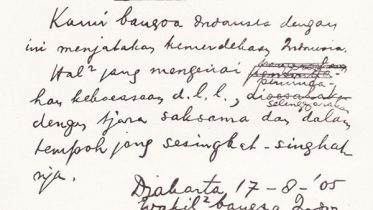 Kami bangsa Indonesia dengan
ini menjatakan kemerdekaan Indonesia.
Hal² jang mengenai
pemindahan
han kekoeasaan d.l.l.,
diselenggarakan
dengan tjara saksama dan dalam
tempoh jang sesingket-singkat
nja.
Djakarta 17-8-'05
Wakil² bangsa Indon